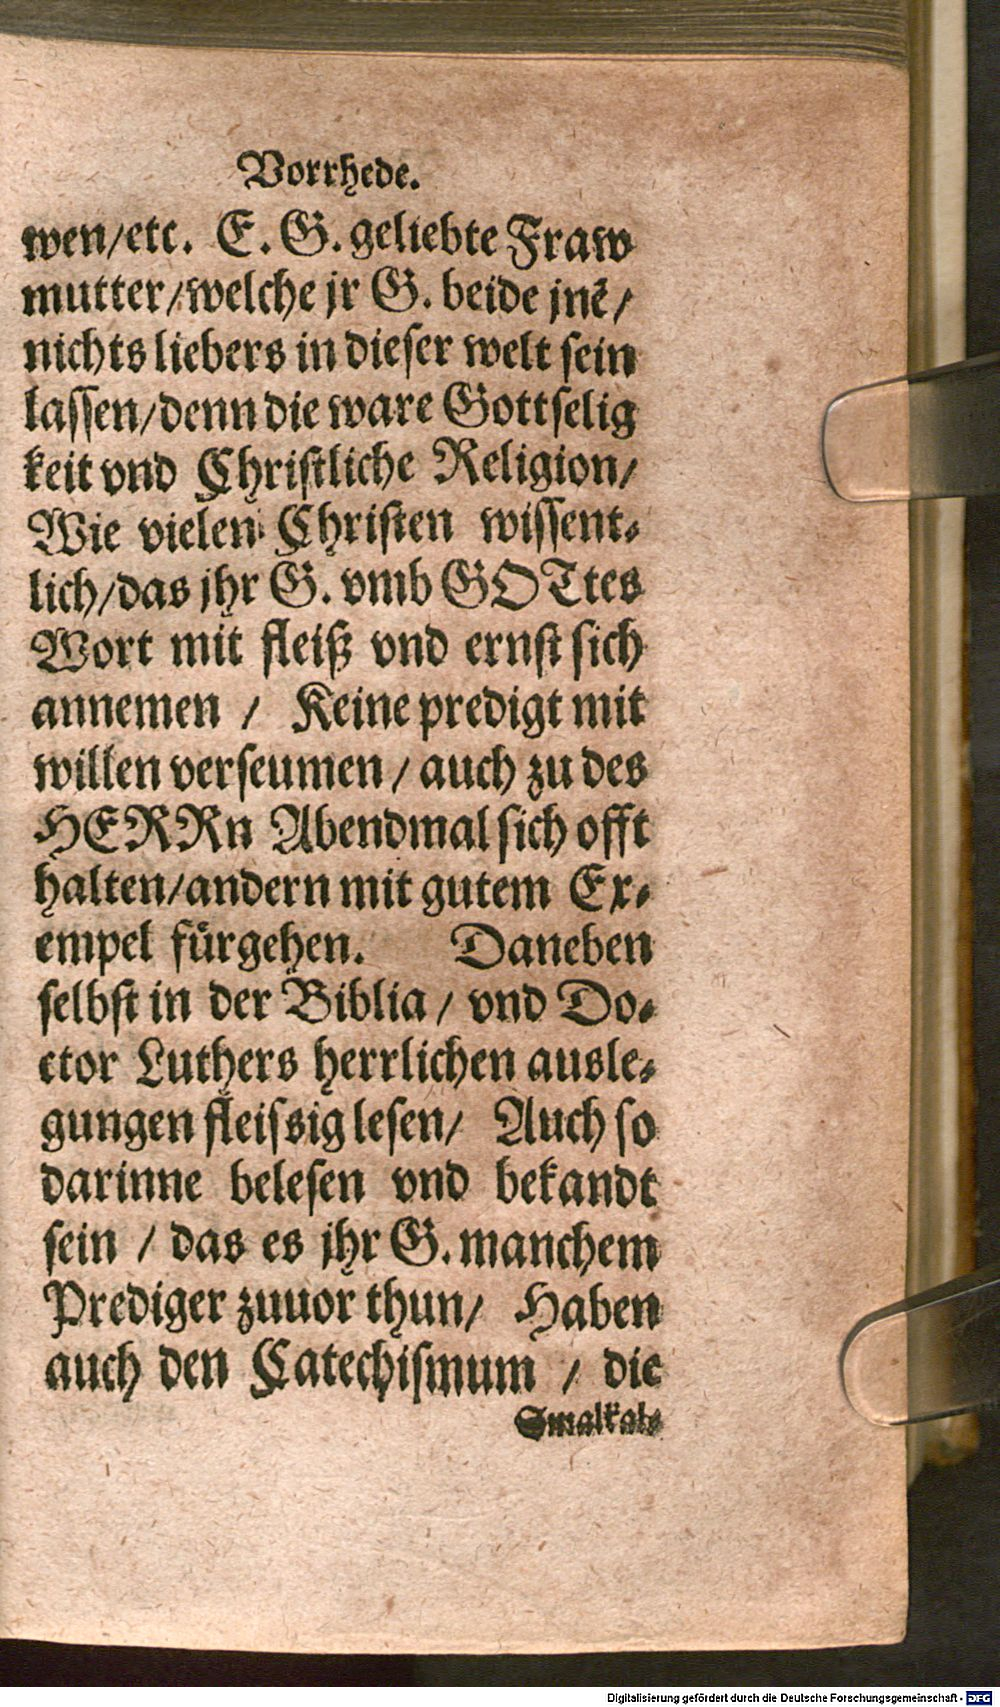 Vorrhede.
wen/etc. E. G. geliebte Fraw
mutter/welche jr G. beide jnē/
nichts liebers in dieſer welt ſein
laſſen/denn die ware Gottſelig
keit vnd Chriſtliche Religion/
Wie vielen Chriſten wiſſent⸗
lich/das jhr G. vmb GOTtes
Wort mit fleiß vnd ernſt ſich
annemen / Keine predigt mit
willen verſeumen / auch zu des
HERRn Abendmal ſich offt
halten/andern mit gutem Ex⸗
empel fürgehen. Daneben
ſelbſt in der Biblia / vnd Do⸗
ctor Luthers herrlichen ausle⸗
gungen fleiſsig leſen/ Auch ſo
darinne beleſen vnd bekandt
ſein / das es jhr G. manchem
Prediger zuuor thun/ Haben
auch den Catechiſmum / die
Smalkal⸗
Digitalisierung gefördert durch die Deutsche Forschungsgemeinschaft - DFG